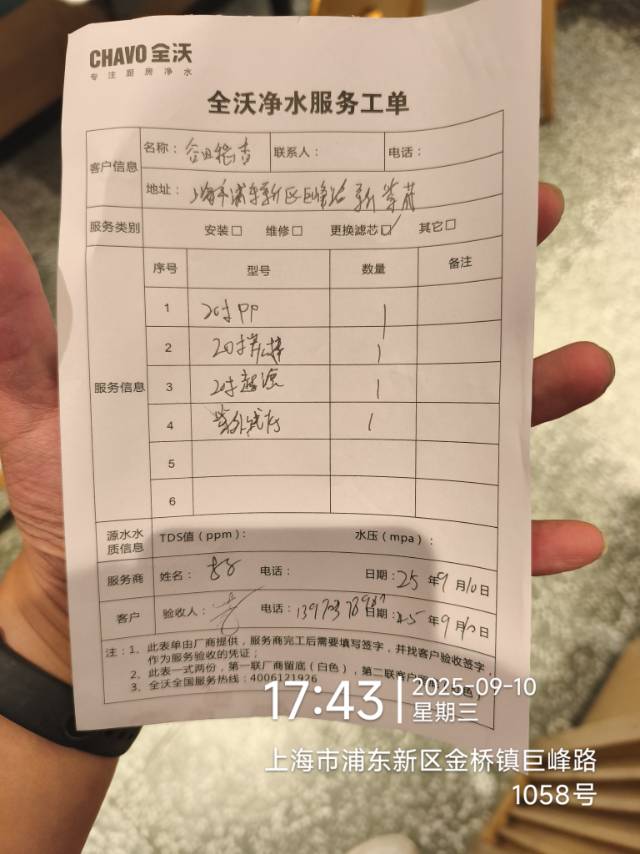 CHAVO 全沃
专注厨房净水
全沃净水服务工单
客户信息
名称：
联系人：
电话：
地址：上海市浦东新区巨峰路
服务类别
安装□ 维修□ 更换滤芯□ 其它□
服务信息
序号 型号 数量 备注
1 20寸PP 1
2 20寸 1
3 20寸 1
4 紫外线灯 1
5
6
源水水质信息
TDS值（ppm）： 水压（mpa）：
服务商 姓名： 电话： 日期：25年9月10日
客户 验收人： 电话： 日期：25年9月10日
注：1、此表单由厂商提供，服务商完工后需要填写签字，并找客户验收签字，
作为服务验收的凭证；
2、此表一式两份，第一联厂商留底（白色），第二联客户
3、全沃全国服务热线：4006121926
17:43
2025-09-10
星期三
上海市浦东新区金桥镇巨峰路
1058号